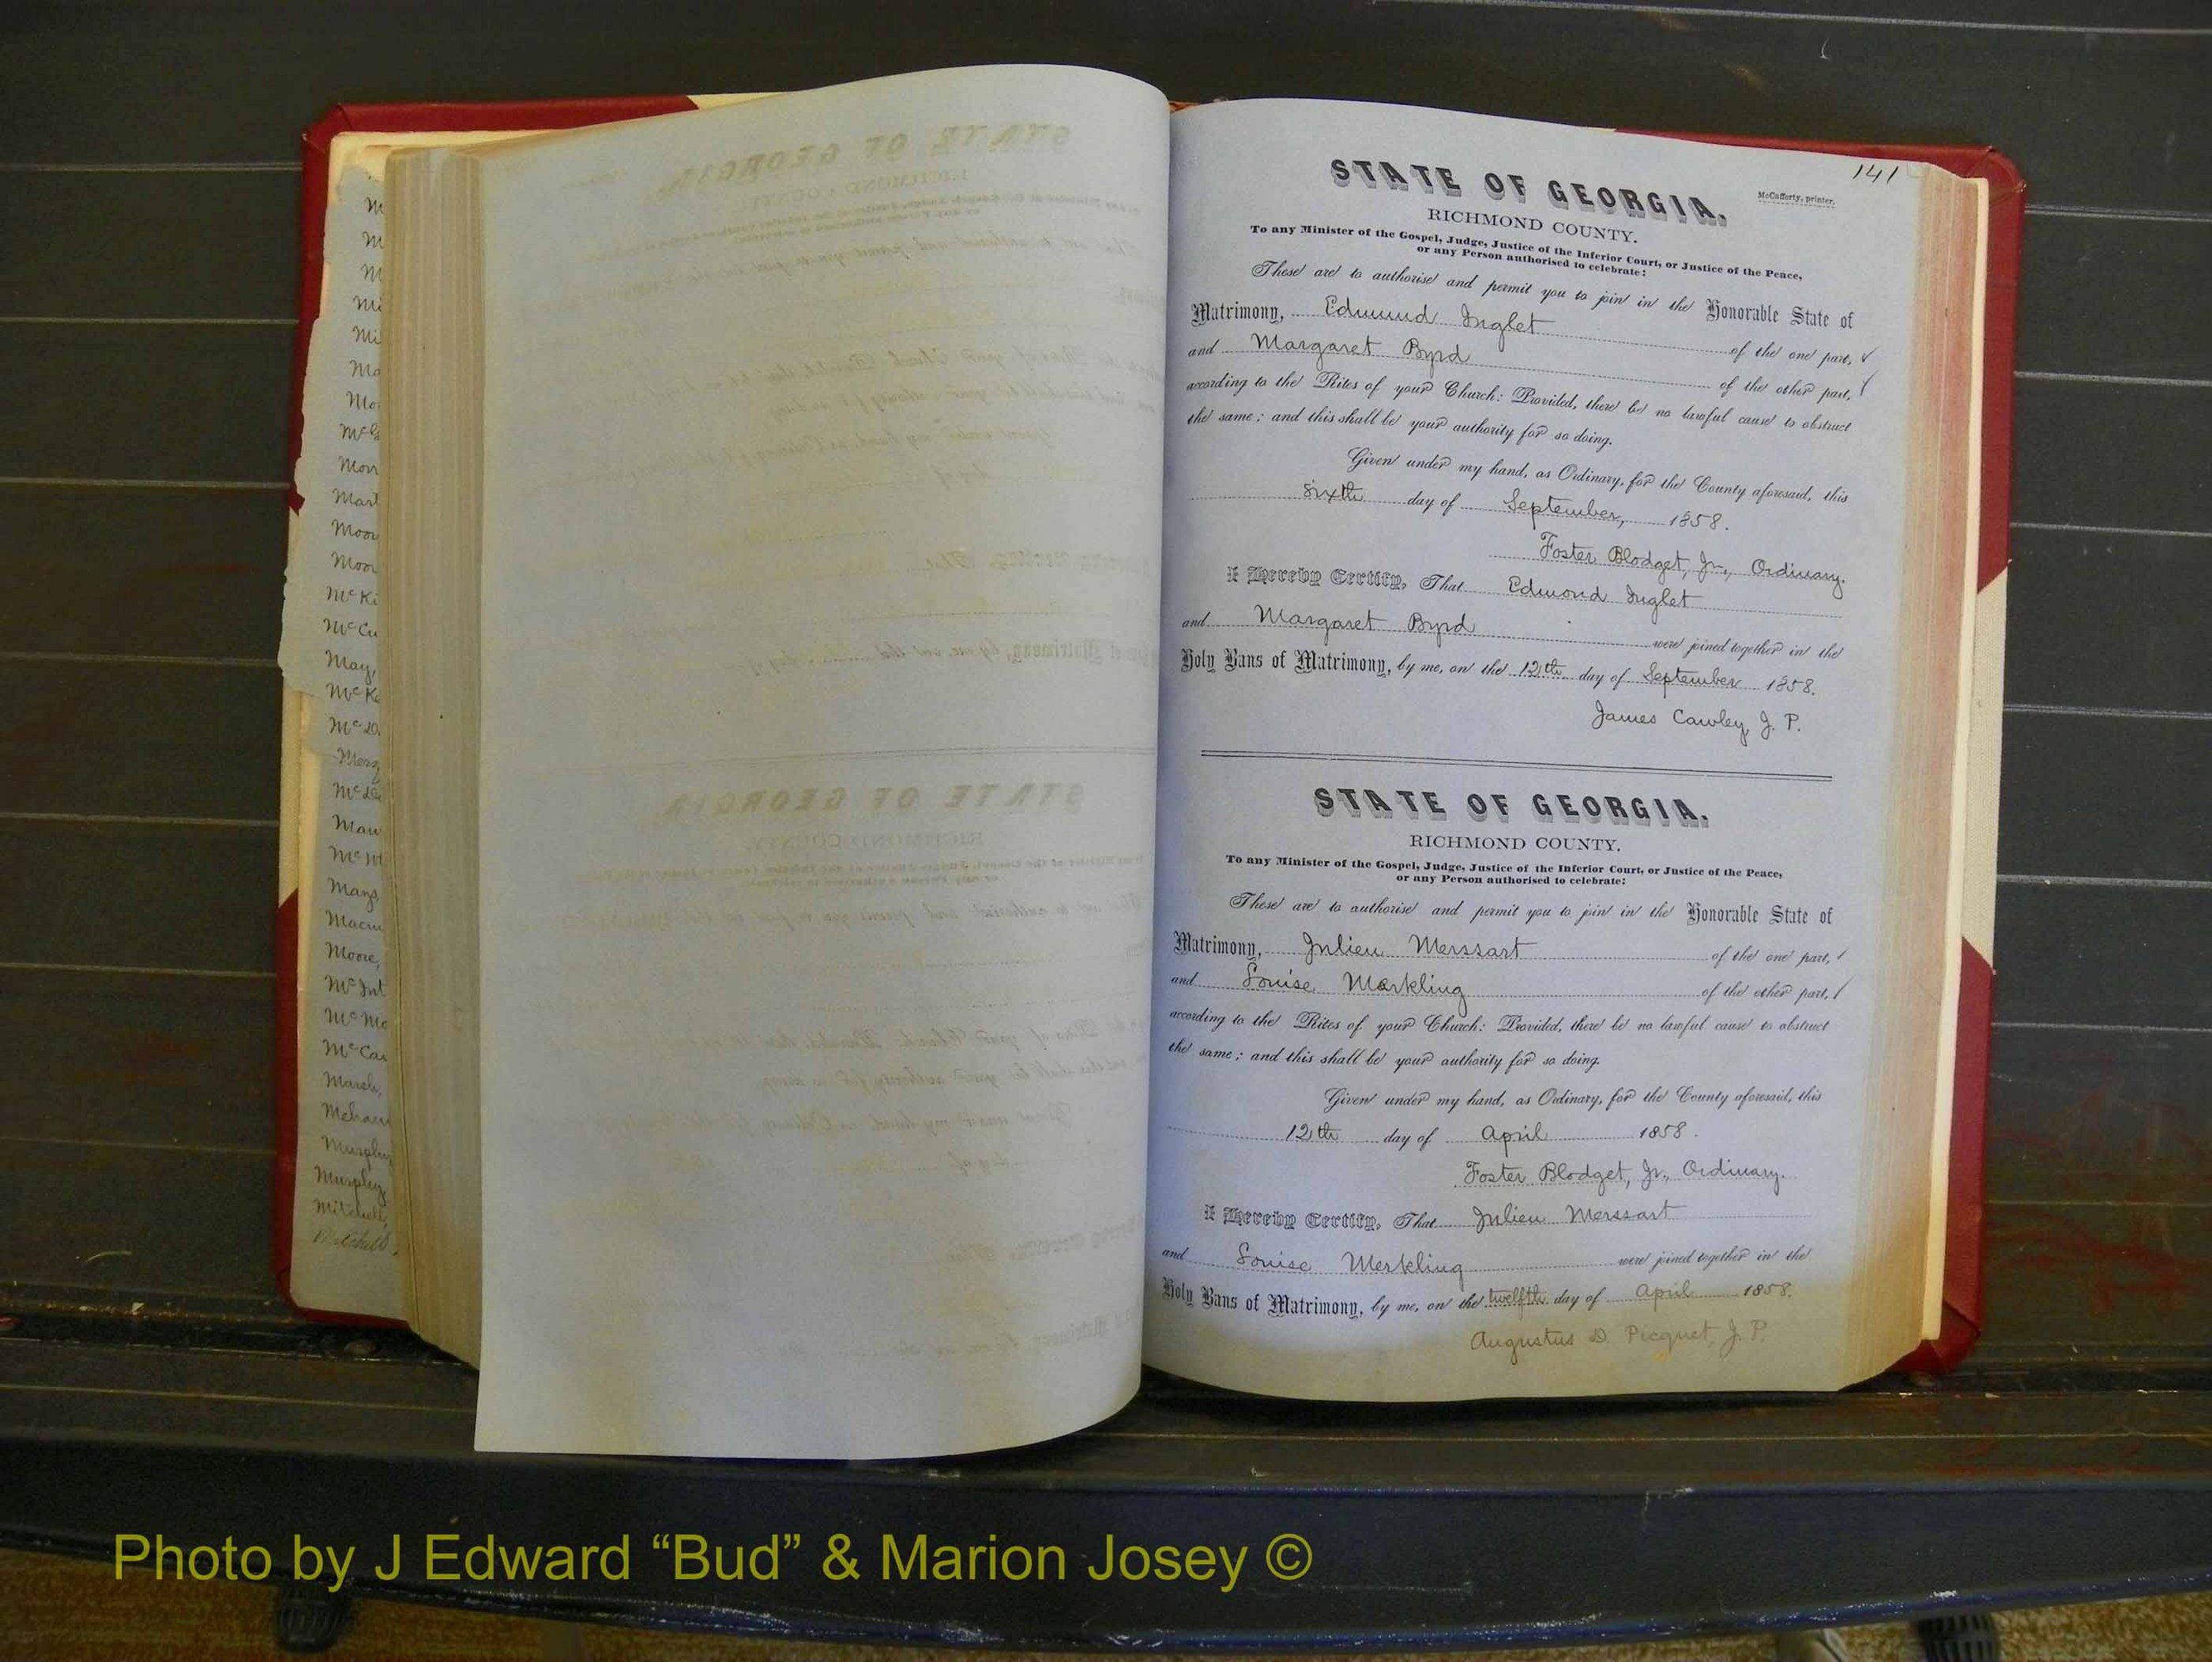 141
STATE OF GEORGIA.
McCafferty, printer.
RICHMOND COUNTY.
To any Minister of the Gospel, Judge, Justice of the Inferior Court, or Justice of the Peace,
or any Person authorised to celebrate:
These are to authorise and permit you to join in the Honorable State of
Matrimony, Edmund Inglet of the one part,
and Margaret Byrd of the other part,
according to the Rites of your Church: Provided, there be no lawful cause to obstruct
the same; and this shall be your authority for so doing.
Given under my hand, as Ordinary, for the County aforesaid, this
sixth day of September, 1858.
Foster Blodget, Jr., Ordinary.
I Hereby Certify, That Edmond Inglet
and Margaret Byrd were joined together in the
Holy Bans of Matrimony, by me, on the 12th day of September 1858.
James Cawley, J. P.
STATE OF GEORGIA.
RICHMOND COUNTY.
To any Minister of the Gospel, Judge, Justice of the Inferior Court, or Justice of the Peace,
or any Person authorised to celebrate:
These are to authorise and permit you to join in the Honorable State of
Matrimony, Julien Merssart of the one part,
and Louise Markling of the other part,
according to the Rites of your Church: Provided, there be no lawful cause to obstruct
the same; and this shall be your authority for so doing.
Given under my hand, as Ordinary, for the County aforesaid, this
12th day of April 1858.
Foster Blodget, Jr., Ordinary.
I Hereby Certify, That Julien Merssart
and Louise Merkling were joined together in the
Holy Bans of Matrimony, by me, on the twelfth day of April 1858.
Augustus D Picquet, J. P.
May,
Moore,
Marsh,
Murphy
Murphy,
Mitchell,
Mitchell,
Photo by J Edward “Bud” & Marion Josey ©